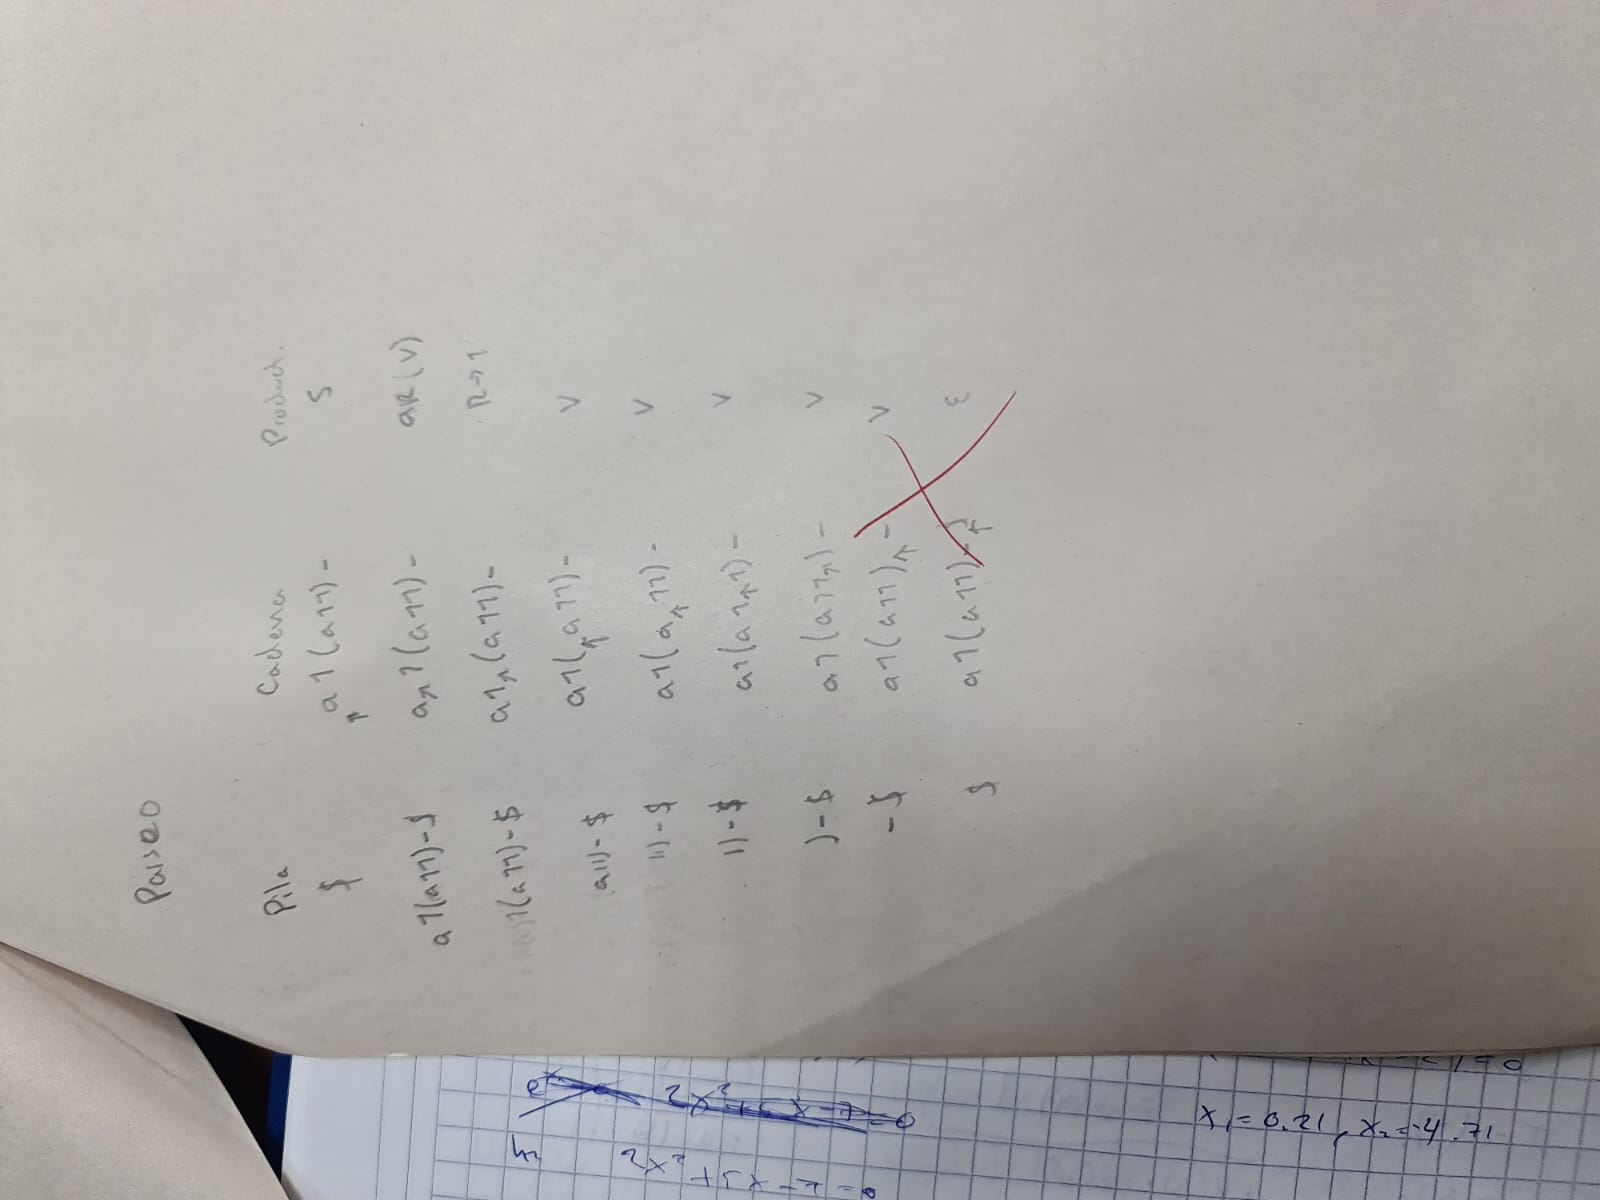 Parseo
Pila Cadena Product.
$ ↑a1(a11)- S
a1(a11)-$ a↑1(a11)- aR(V)
1(a11)-$ a1↑(a11)- R→1
a11)-$ a1(↑a11)- V
11)-$ a1(a↑11)- V
1)-$ a1(a1↑1)- V
)-$ a1(a11↑)- V
-$ a1(a11)↑- V
$ a1(a11)-↑ ε
ln
2x² + 5x - 7 = 0
x₁ = 0.21, x₂ = -4.71